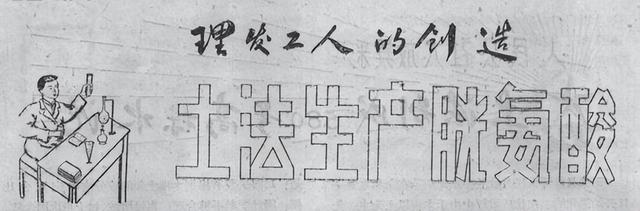 理发工人的创造
土法生产胱氨酸